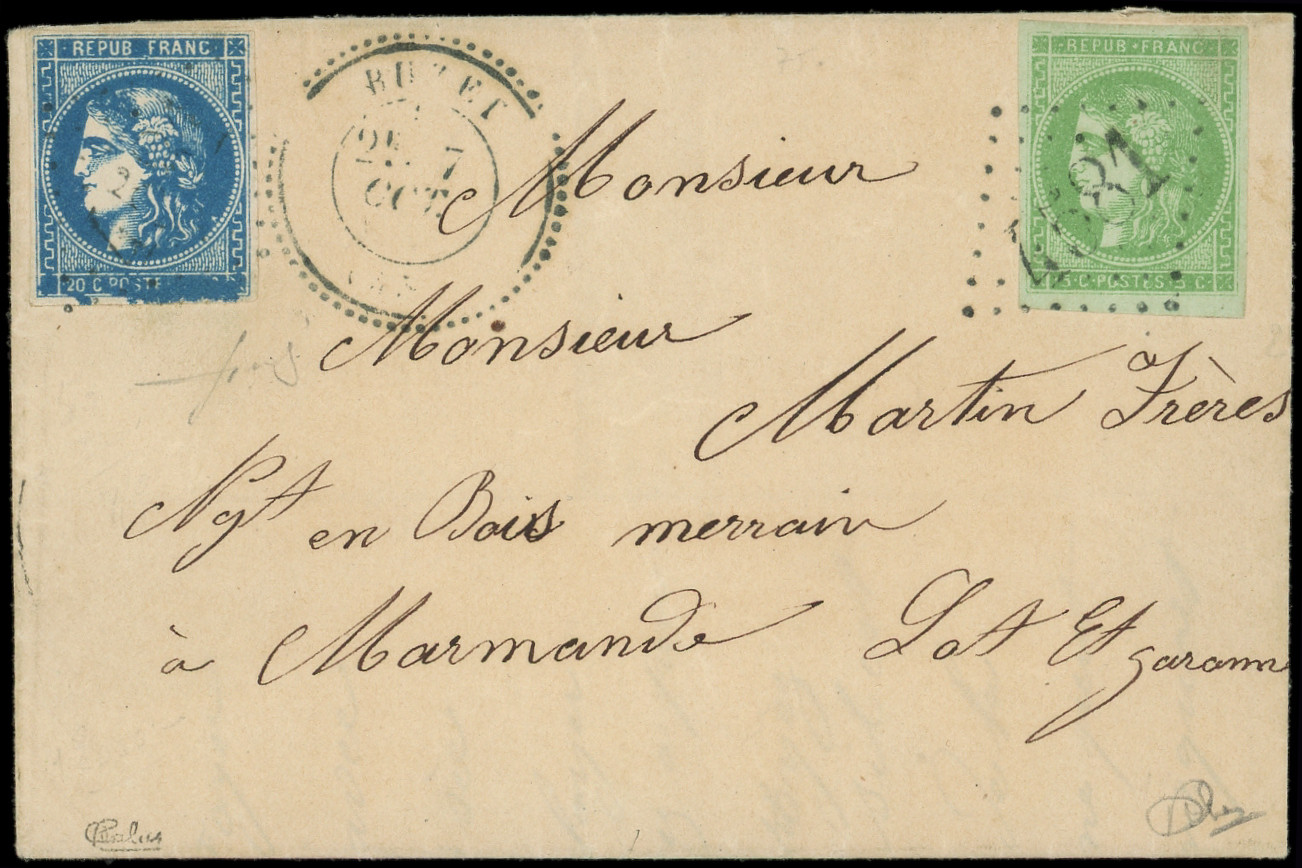 REPUB FRANC
20 C POSTE
BUZET
25 7
OCT
REPUB FRANC
5 C POSTES 5 C
Monsieur
Monsieur
Martin Frères
Ngt en Bois merrain
à Marmande Lot Et garonne
Calves